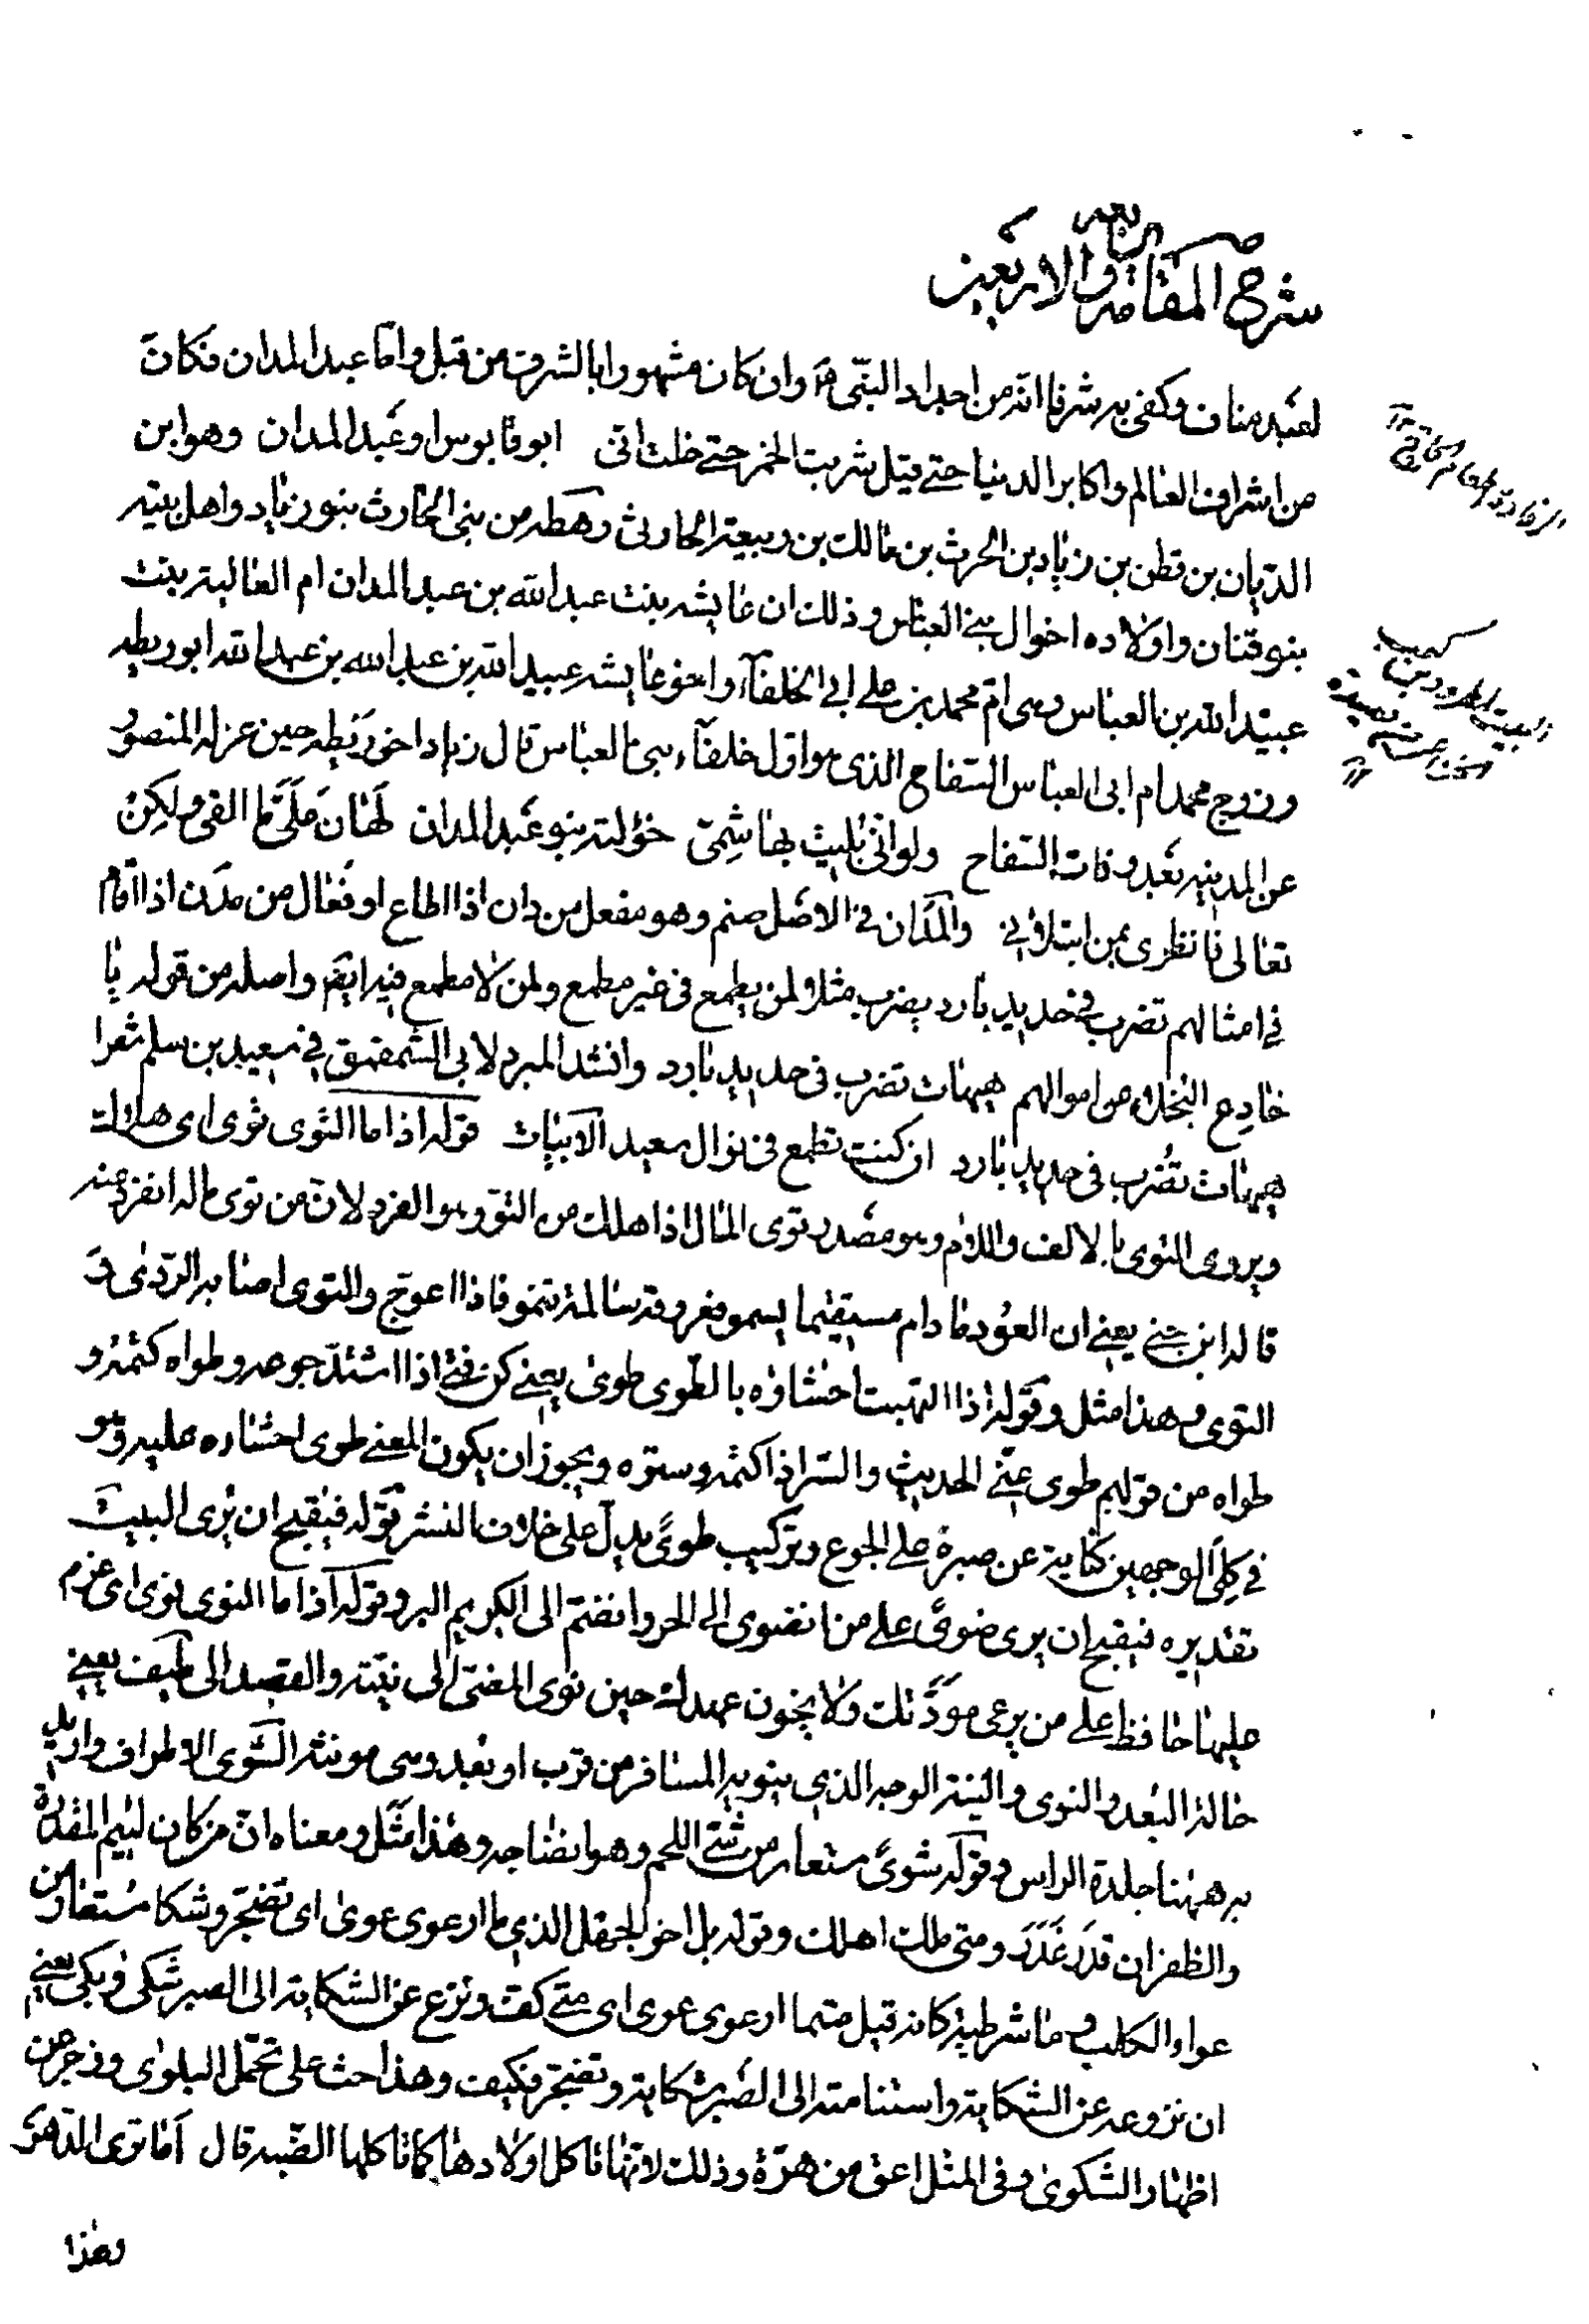 شرح المقامة الرابعة والاربعين
لعبد مناف وكفى به شرفا انه من اجداد النبى وان كان مشهورا بالشرف من قبل واما عبد المدان فكان
من اشراف العالم واكابر الدنيا حتى قيل شربت الخمر حتى خلت انى ابو قابوس او عبد المدان وهو ابن
الديان بن قطن بن زياد بن الحرث بن مالك بن ربيعة الحارثى رهطه من بنى الحارث بنو زياد واهل بيته
بنو قنان واولاده اخوال بنى العباس وذلك ان عايشه بنت عبد الله بن عبد المدان ام العالية بنت
عبيد الله بن العباس وهى ام محمد بن على ابى الخلفآء واخو عايشه عبيد الله بن عبد الله بن عبد الله ابو ريطه
وزوج محمد ام ابى العباس السفاح الذى هو اول خلفآء بنى العباس قال زياد اخو ريطه حين عزله المنصور
عن المدينه بعد وفات السفاح ولو انى بليت بهاشمى خؤلته بنو عبد المدان لهان على ما القى ولكن
تعالى فانظرى بمن ابتلانى والمدان فى الاصل صنم وهو مفعل من دان اذا اطاع او فعال من مدن اذا اقام
فى امثالهم تضرب فى حديد بارد يضرب مثلا لمن يطمع فى غير مطمع ولمن لا مطمع فيه ايضا واصله من قوله يا
خادع البخلاء عن اموالهم هيهات تضرب فى حديد بارد وانشد المبرد لابى الشمقمق فى سعيد بن سلم شعرا
هيهات تضرب فى حديد بارد ان كنت تطمع فى نوال سعيد الابيات قوله اذا ما التوى توى اى هلك
ويروى التوى بالالف واللام وهو مصدر توى المال اذا هلك من التو وهو الفرد لان من توى ماله انفرد عنه
قاله ابن جنى يعنى ان العود ما دام مستقيما يسمو فعروقه سالمة تنمو فاذا اعوج والتوى اصابه الردى و
التوى وهذا مثل وقوله اذا التهبت احشاؤه بالطوى طوى يعنى كن فتى اذا اشتد جوعه وطواه كتمه و
طواه من قولهم طوى عنى الحديث والسر اذا كتمه وستره ويجوز ان يكون المعنى طوى احشاءه عليه وهو
فى كلى الوجهين كناية عن صبره على الجوع وتركيب طوى يدل على خلاف النشر قوله فيقبح ان يرى البيت
تقديره فيقبح ان يرى ضوى على من انضوى الى الحر وانضم الى الكريم البر وقوله اذا ما النوى نوى اى عزم
عليها حافظ على من يرعى مودتك ولا يخون عهدك حين نوى المفتى الى نيته والقصد الى طيف يعنى
حالة البعد والنوى والنية الوجه الذى ينويه المسافر من قرب او بعد وهى مونثه الشوى الاطراف واريد
به ههنا جلدة الراس وقوله شوى مستعار من شئ اللحم وهو انضاجه وهذا مثل ومعناه ان من كان لئيم المقدرة
والظفر ان قدر غدر ومتى ملك اهلك وقوله بل اخو الجهل الذى ما ارعوى عوى اى تضجر وشكا مستعار من
عواء الكلب وما شرطية كانه قيل متى ما ارعوى عوى اى متى كف ونزع عن الشكاية الى الصبر شكى وبكى يعنى
ان نزوعه عن الشكاية واستنامته الى الصبر شكاية وتضجر فكيف وهذا حث على تحمل البلوى وزجر عن
اظهار الشكوى وفى المثل اعق من هرة وذلك لانها تاكل اولادها كما تاكلها الضبه قال اما ترى الدهر
وهذا